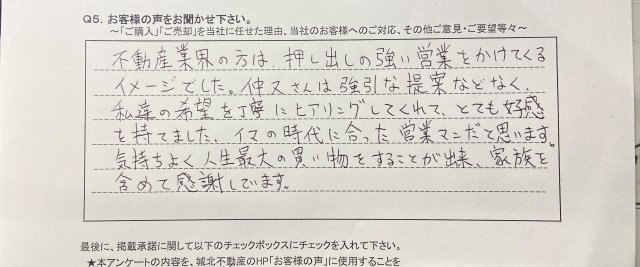 Q5. お客様の声をお聞かせ下さい。
～「ご購入」「ご売却」を当社に任せた理由、当社のお客様へのご対応、その他ご意見・ご要望等々～
不動産業界の方は、押し出しの強い営業をかけてくる
イメージでした。仲又さんは強引な提案などなく、
私達の希望を丁寧にヒアリングしてくれて、とても好感
を持てました。イマの時代に合った営業マンだと思います。
気持ちよく人生最大の買い物をすることが出来、家族を
含めて感謝しています。
最後に、掲載承諾に関して以下のチェックボックスにチェックを入れて下さい。
★本アンケートの内容を、城北不動産のHP「お客様の声」に使用することを